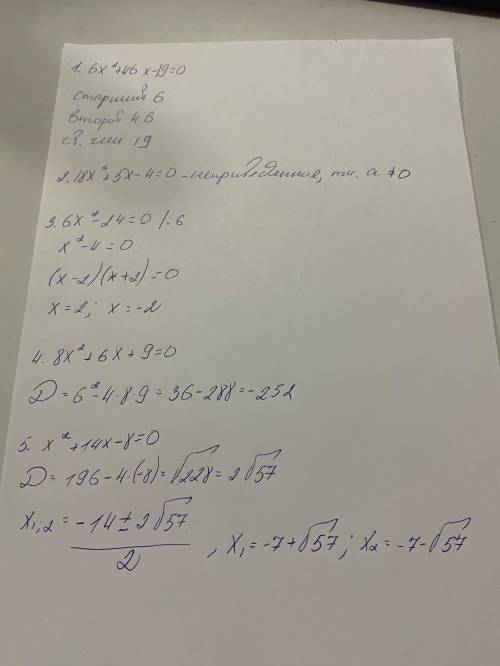 1. 6x²+46x-19=0
старший 6
второй 46
св. член 19
2. 18x²+5x-4=0 - неприведенное, т.к. a ≠0
3. 6x²-24=0 /:6
x²-4=0
(x-2)(x+2)=0
x=2; x=-2
4. 8x²+6x+9=0
D=6²-4·8·9=36-288=-252
5. x²+14x-8=0
D=196-4·(-8)=√228=2√57
x1,2 = -14±2√57 / 2 , x1=-7+√57; x2=-7-√57